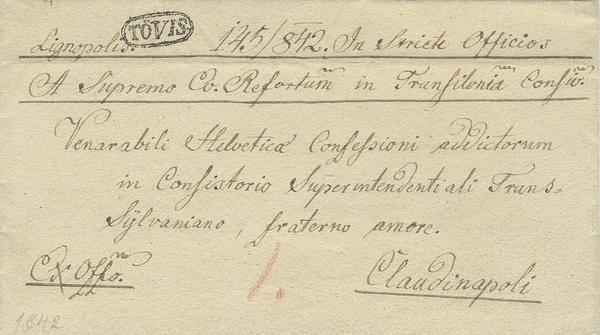 TÖVIS
Lignopolis. 145/842. In Stricte Officios
A Supremo Co. Refortum in Transilonia Consiu.
Venarabili Helveticæ Confessioni addictorum
in Consistorio Superintendentiali Trans=
sÿlvaniano, fraterno amore.
Ex Offo. Claudinapoli
1.
1842